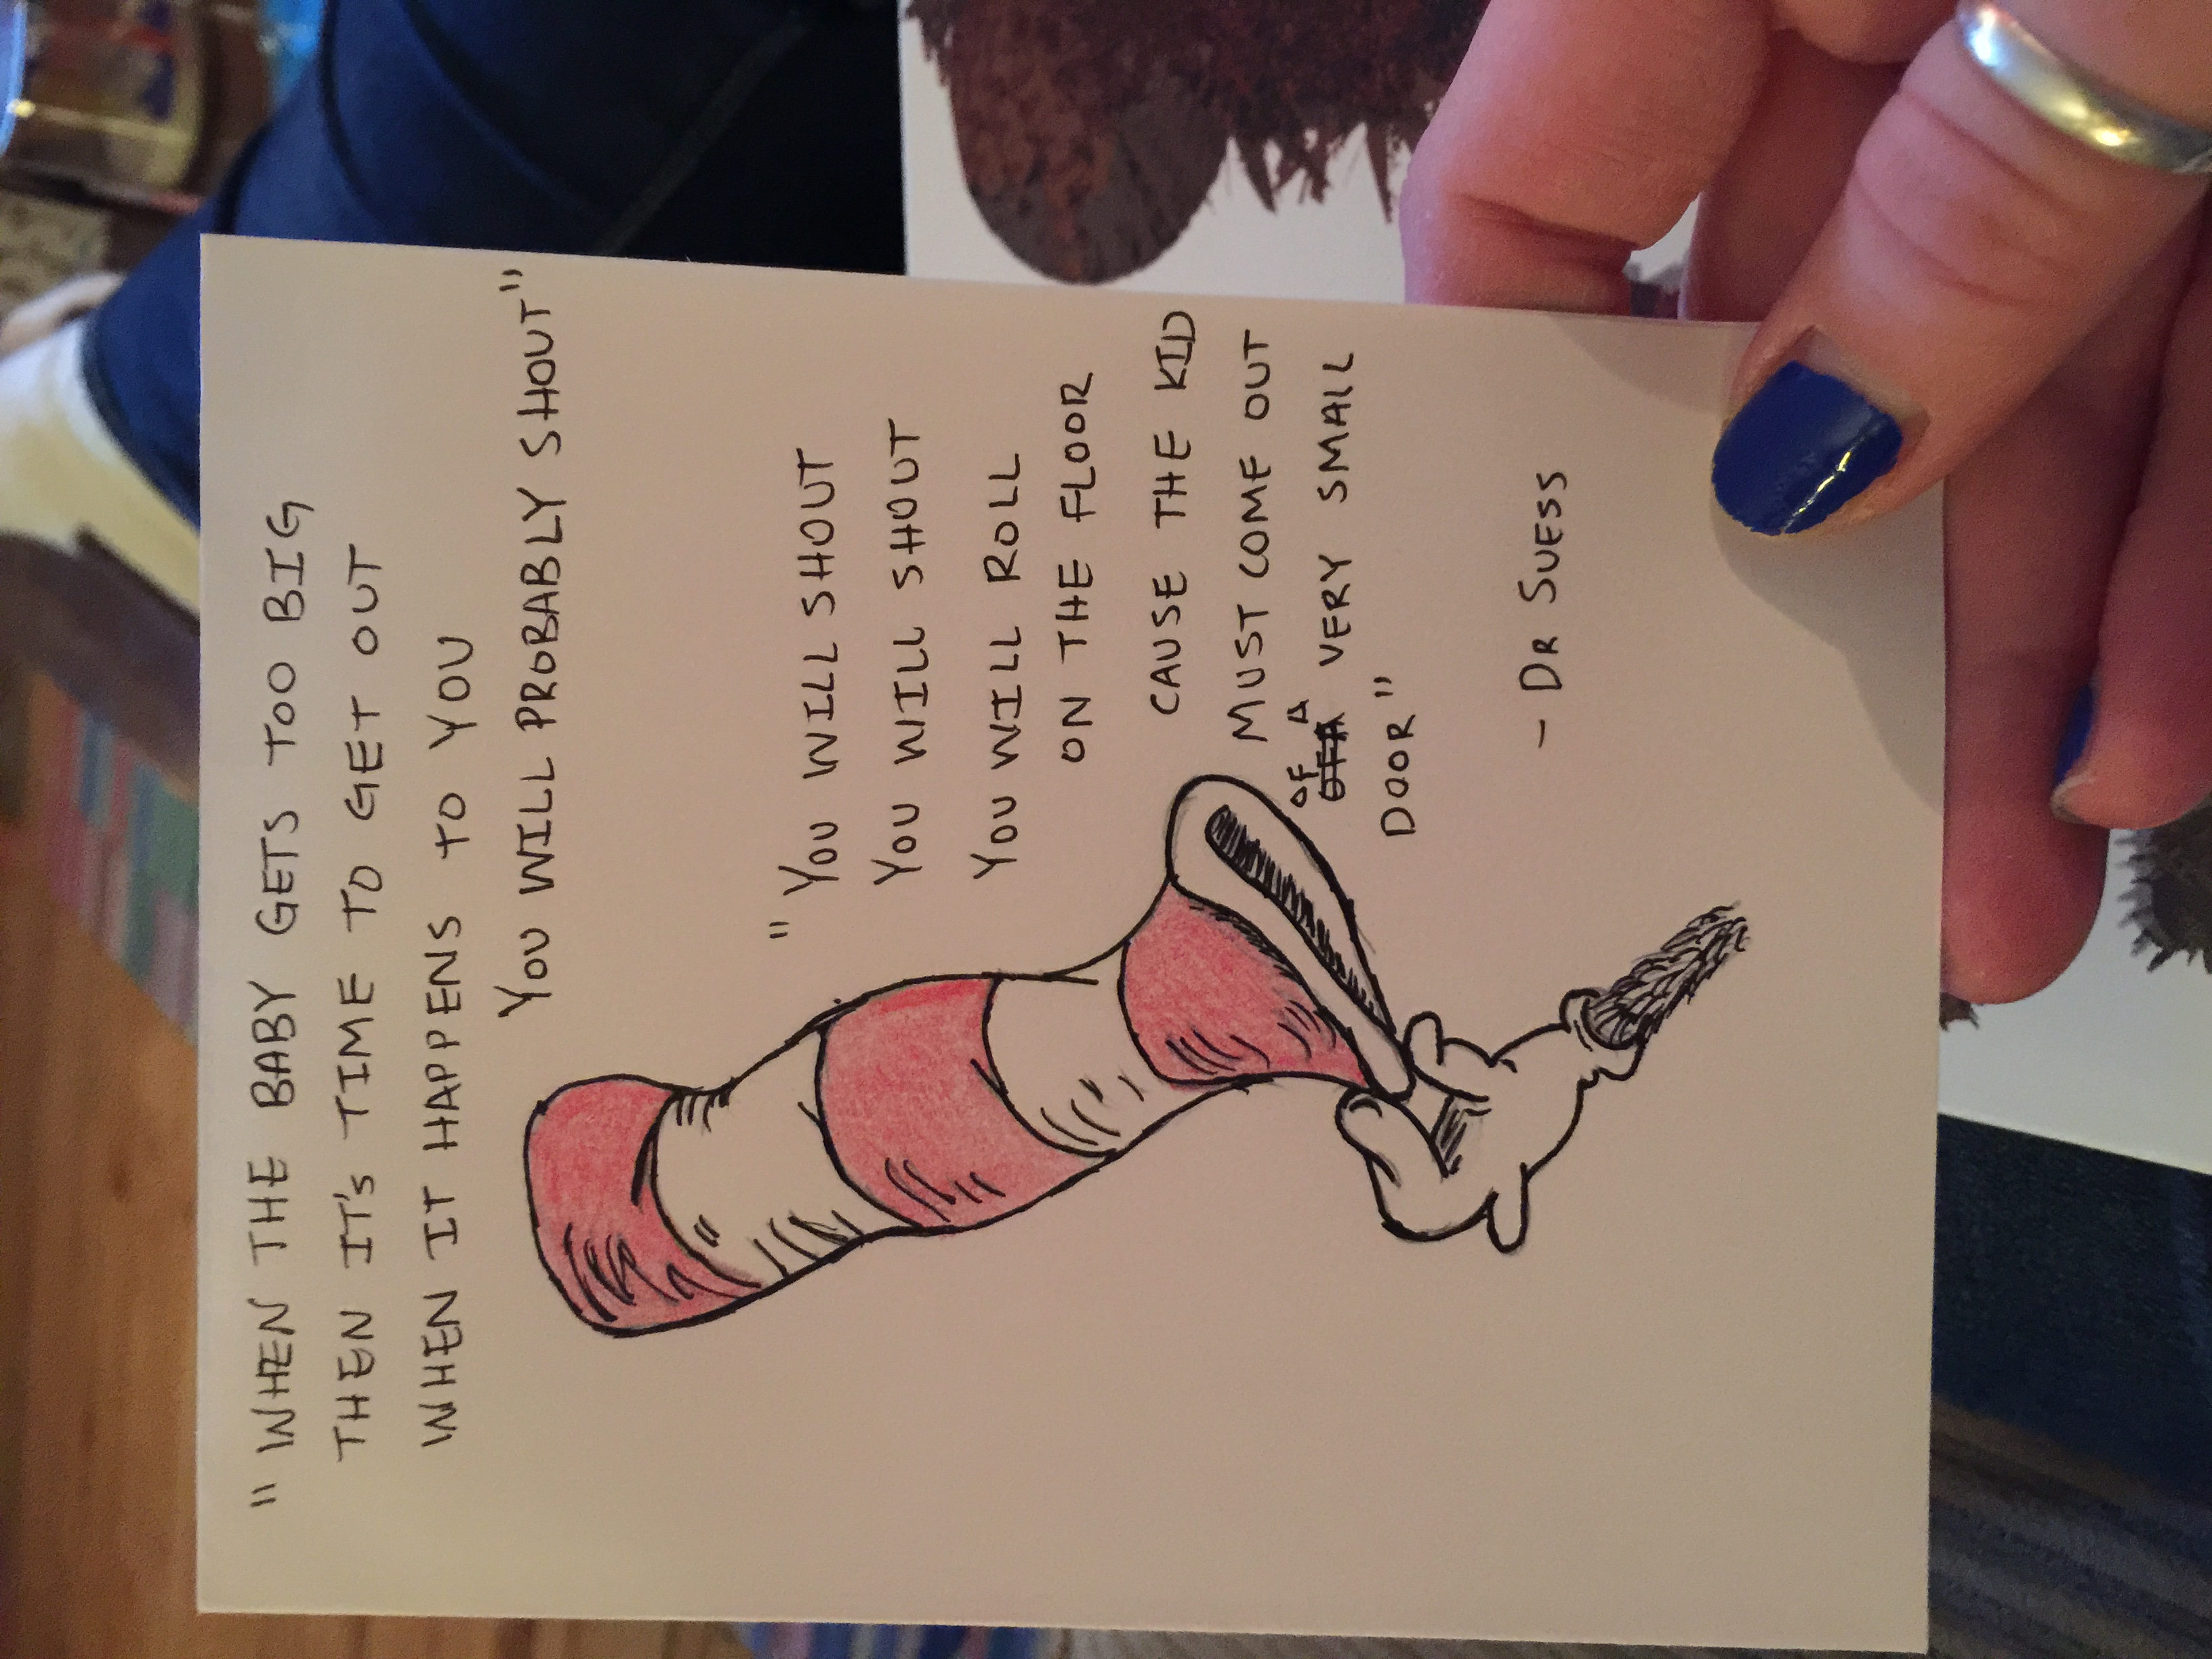 "WHEN THE BABY GETS TOO BIG
THEN IT'S TIME TO GET OUT
WHEN IT HAPPENS TO YOU
YOU WILL PROBABLY SHOUT"
"YOU WILL SHOUT
YOU WILL SHOUT
YOU WILL ROLL
ON THE FLOOR
CAUSE THE KID
MUST COME OUT
OF A
OFA VERY SMALL
DOOR"
- DR SUESS